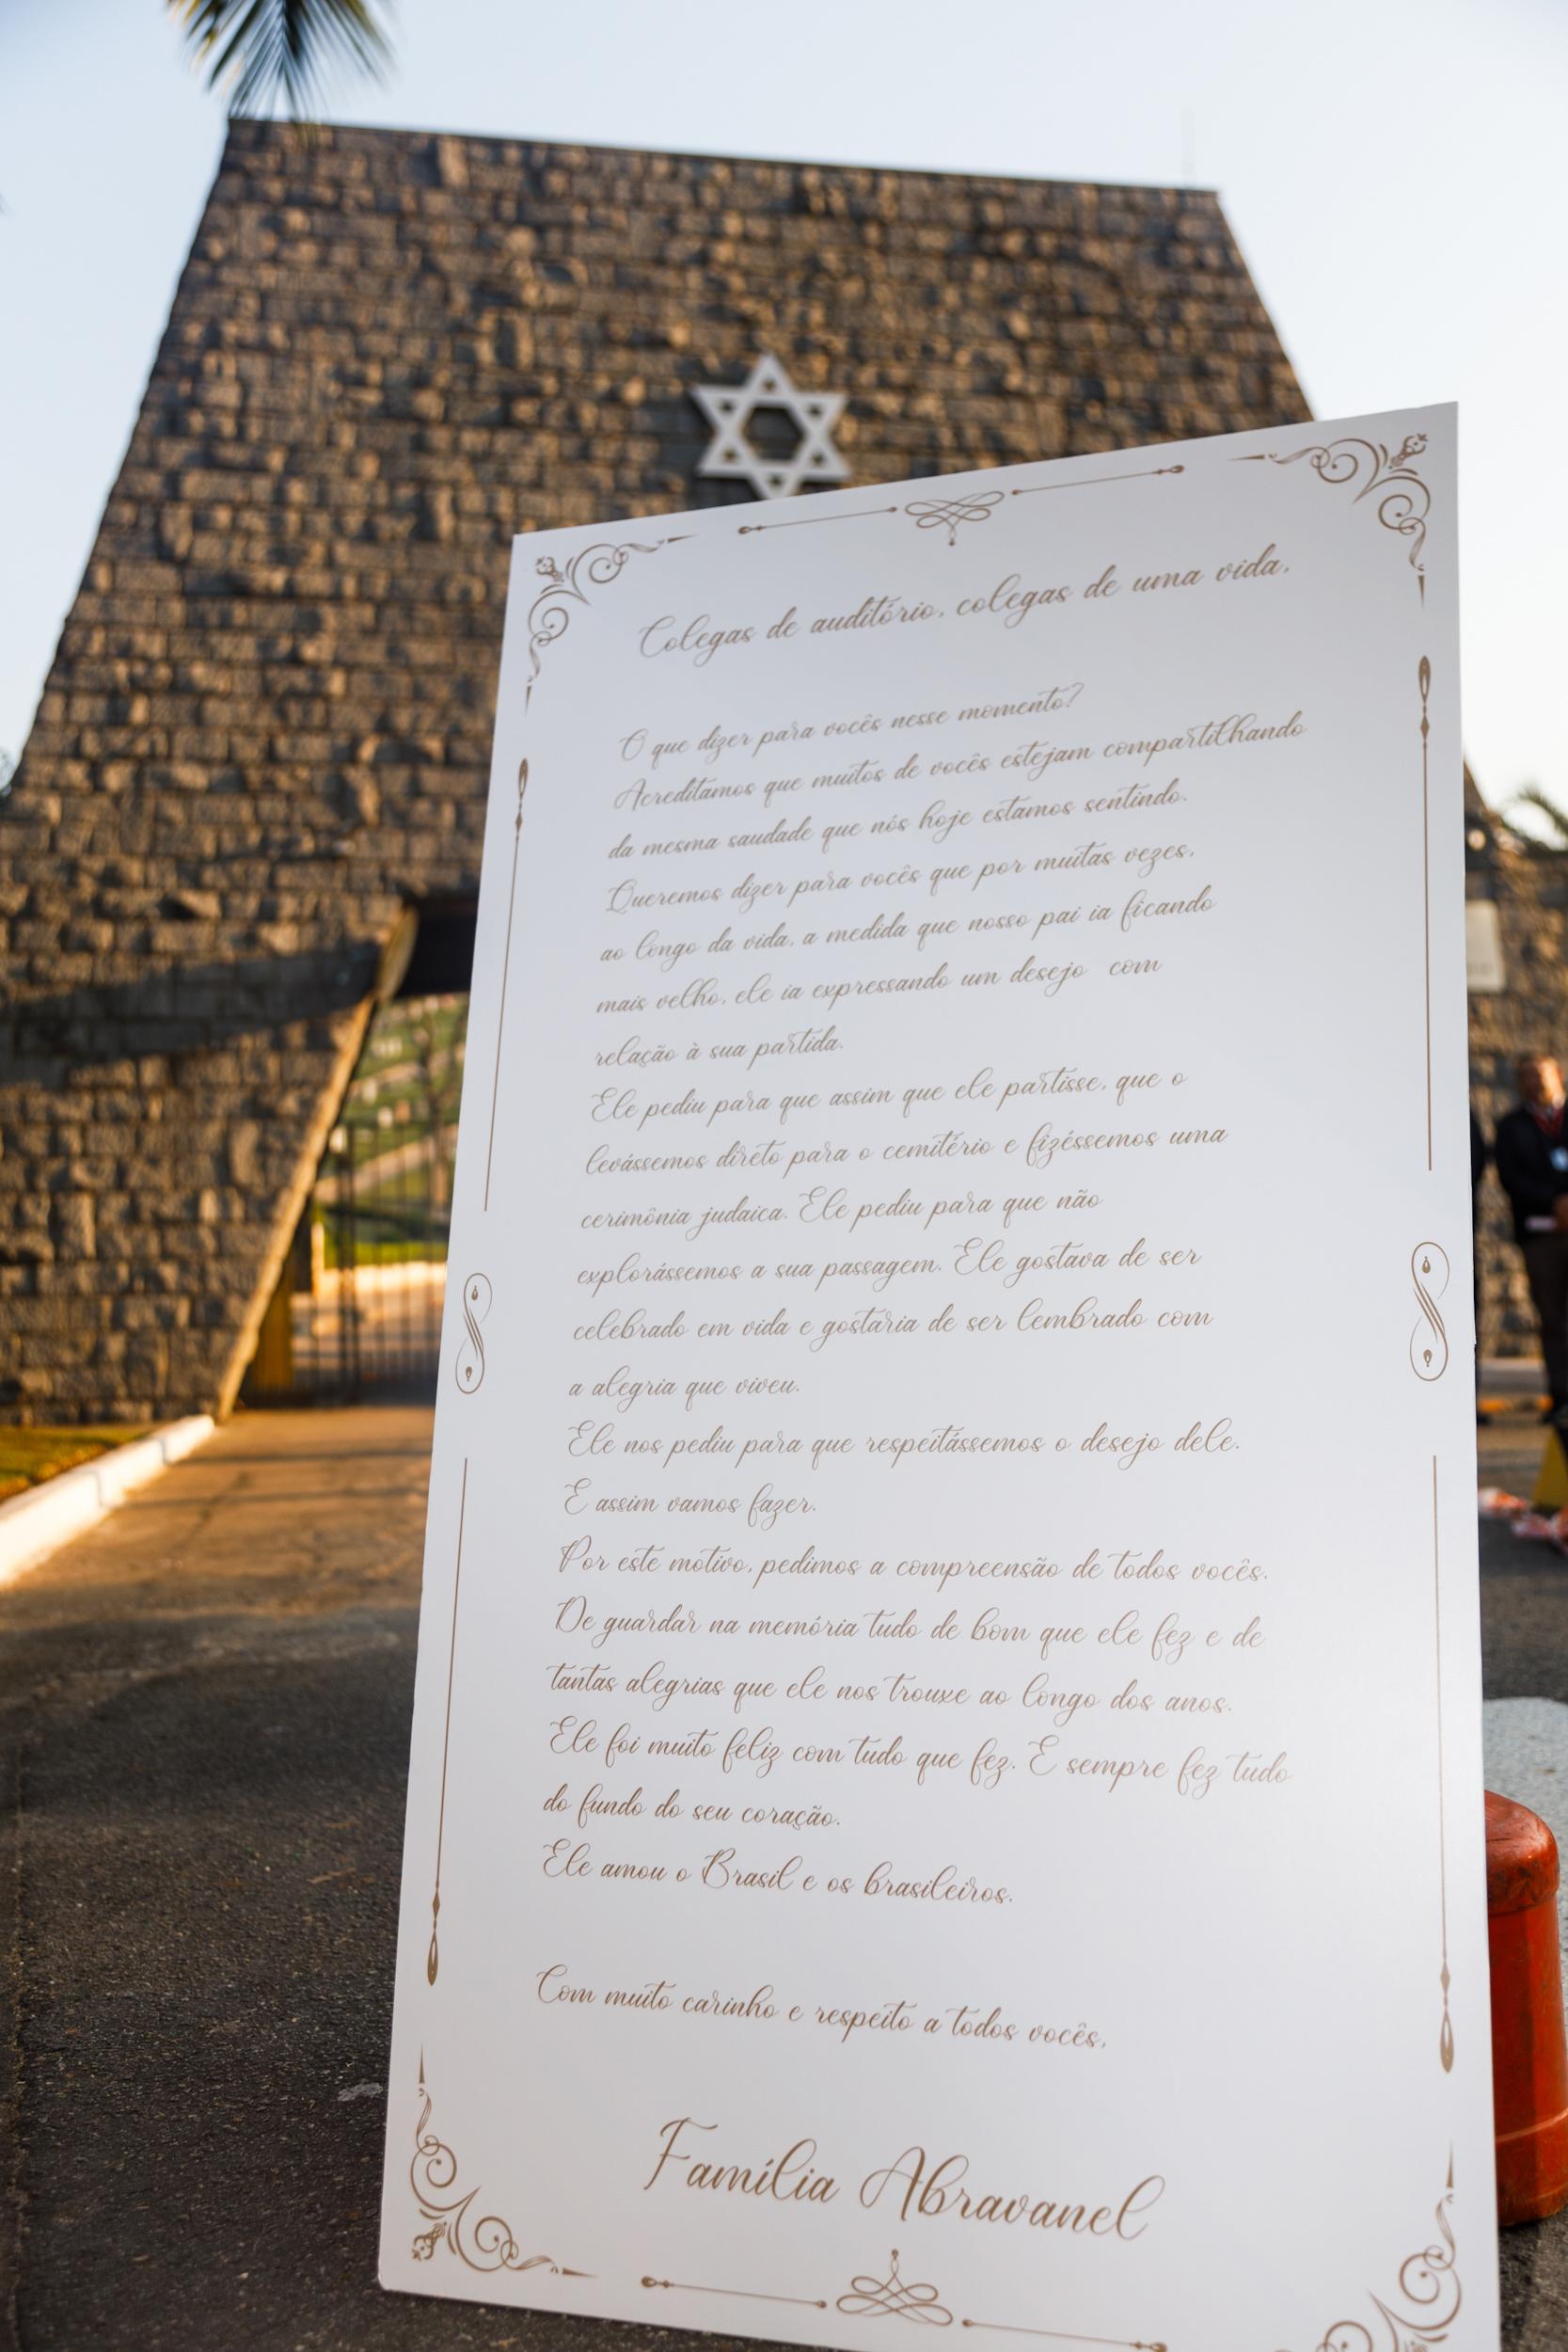 Colegas de auditório, colegas de uma vida,
O que dizer para vocês nesse momento?
Acreditamos que muitos de vocês estejam compartilhando
da mesma saudade que nós hoje estamos sentindo.
Queremos dizer para vocês que por muitas vezes,
ao longo da vida, a medida que nosso pai ia ficando
mais velho, ele ia expressando um desejo com
relação à sua partida.
Ele pediu para que assim que ele partisse, que o
levássemos direto para o cemitério e fizéssemos uma
cerimônia judaica. Ele pediu para que não
explorássemos a sua passagem. Ele gostava de ser
celebrado em vida e gostaria de ser lembrado com
a alegria que viveu.
Ele nos pediu para que respeitássemos o desejo dele.
E assim vamos fazer.
Por este motivo, pedimos a compreensão de todos vocês.
De guardar na memória tudo de bom que ele fez e de
tantas alegrias que ele nos trouxe ao longo dos anos.
Ele foi muito feliz com tudo que fez. E sempre fez tudo
do fundo do seu coração.
Ele amou o Brasil e os brasileiros.
Com muito carinho e respeito a todos vocês,
Família Abravanel